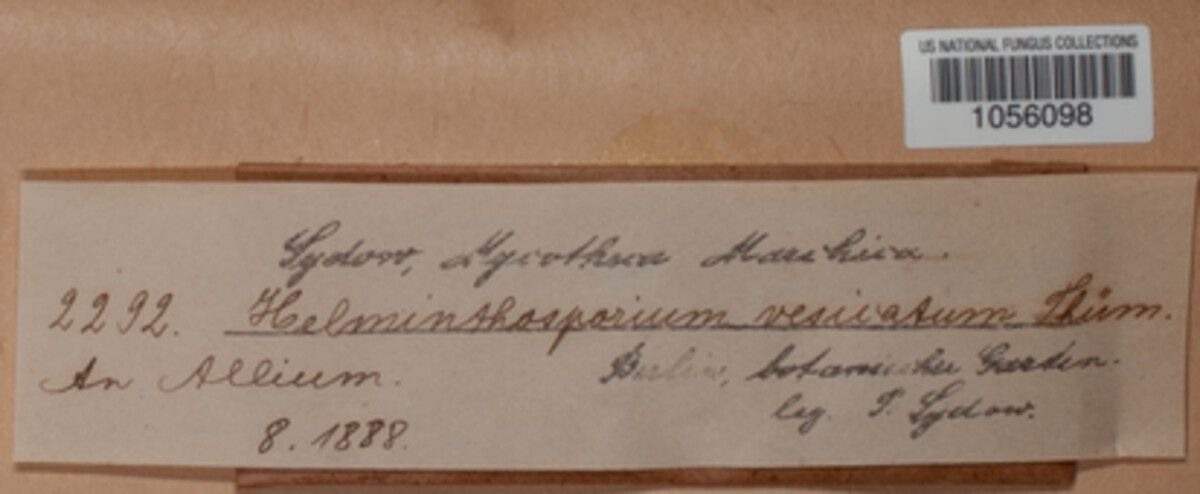 US NATIONAL FUNGUS COLLECTIONS
1056098
Sydow, Mycotheca Marchica.
2292. Helminthosporium vesicatum Thüm.
An Allium. Berlin, botanischer Garten.
leg. P. Sydow.
8. 1888.